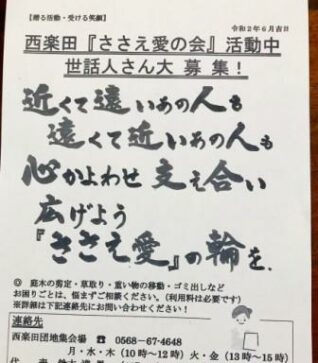 【贈る活動・受ける笑顔】
令和２年６月吉日
西楽田『ささえ愛の会』活動中
世話人さん大募集！
近くて遠いあの人も
遠くて近いあの人も
心かよわせ 支え合い
広げよう
『ささえ愛』の輪を、
◎ 庭木の剪定・草取り・重い物の移動・ゴミ出しなど
お困りごとは、悩まずご相談ください。（利用料は必要です）
※詳細は下記連絡先にお問い合わせください！
連絡先
西楽田団地集会場 ☎ 0568－67－4648
月・水・木（10時～12時）火・金（13時～15時）